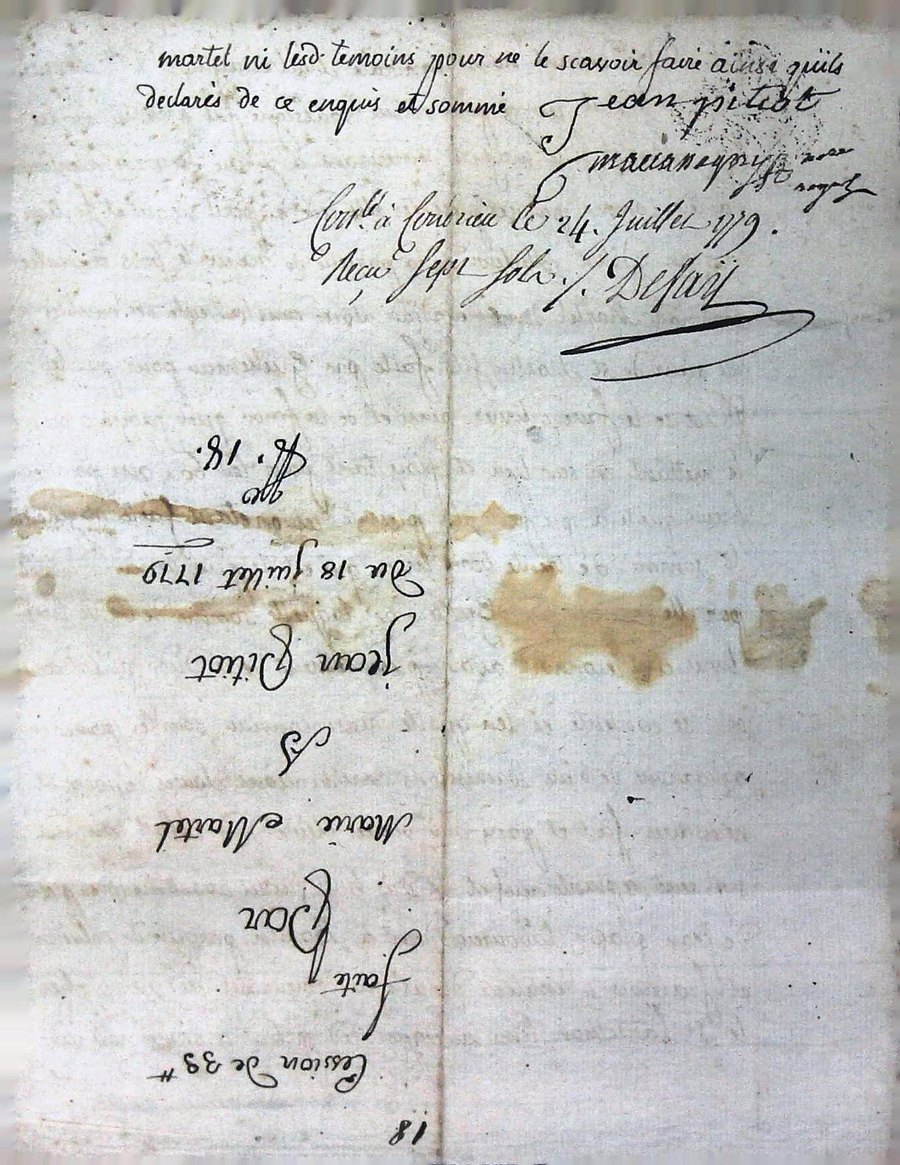 martel ni lesd. temoins pour ne le scavoir faire ainsi quils
declarés de ce enquis et sommé Jean pitiot
nore
royal
Conlé à Condrieu le 24. Juillet 1779.
Reçu Sept sols ./. Defaÿ
18
Cession de 39#
faite
Par
Marie Martel
A
jean Pitiot
Du 18 juillet 1779
N. 18.